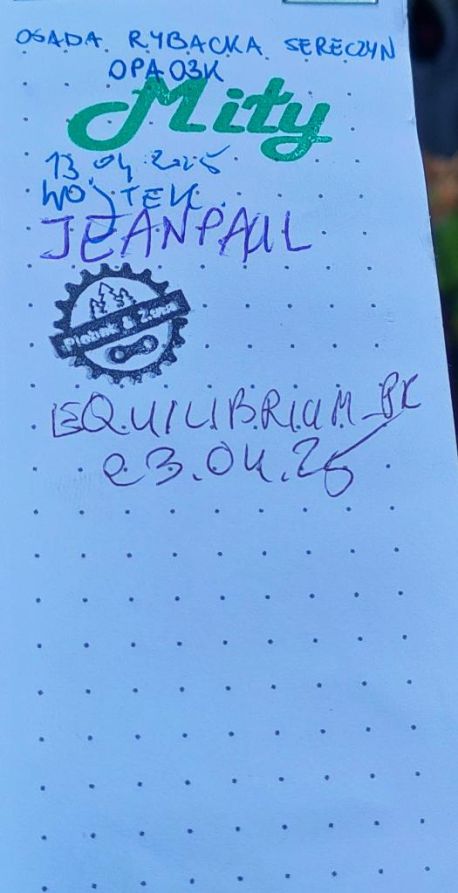 OSADA RYBACKA SERECZYN
OPA03K
Mity
13.04.2025
WOJTEK
JEANPAUL
Plebek & Zona
EQUILIBRIUM_BK
23.04.25